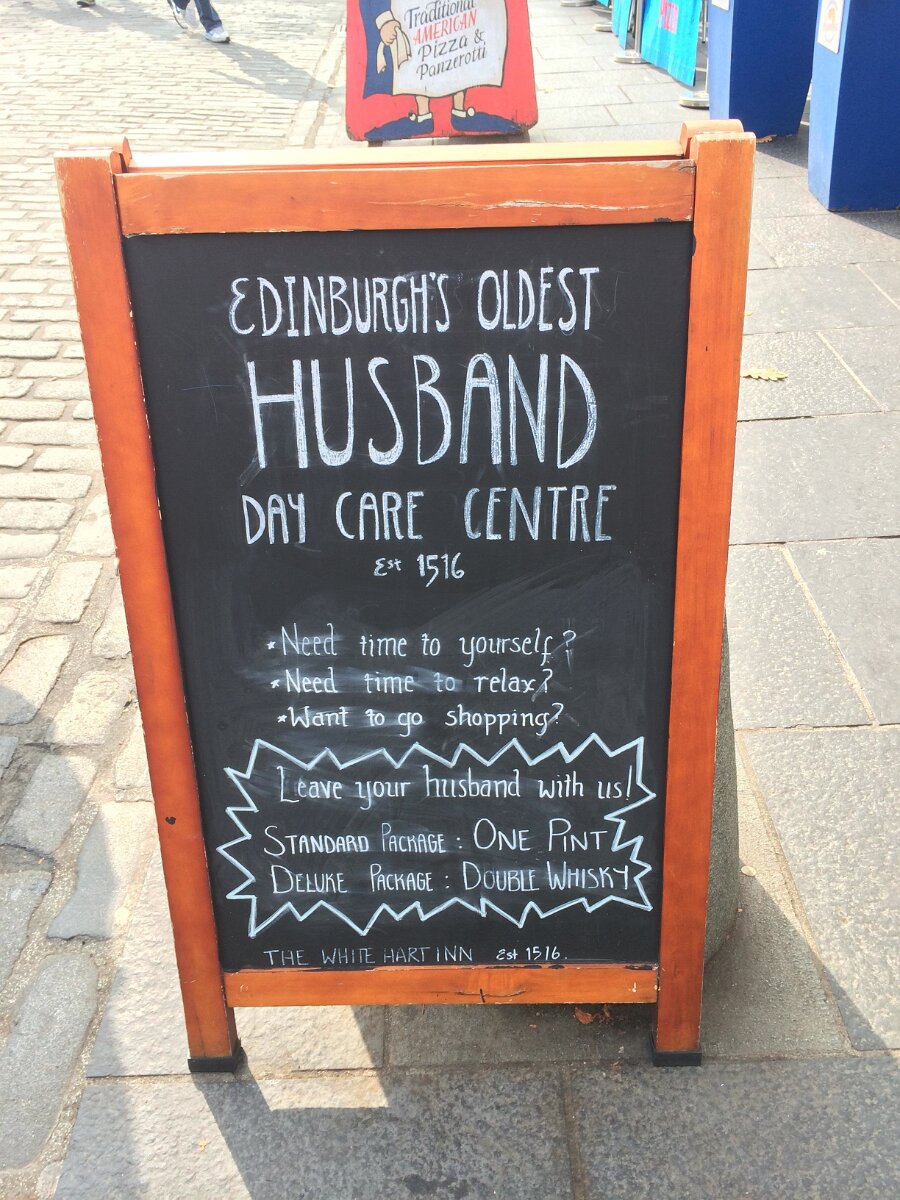 Traditional
AMERICAN
Pizza &
Panzerotti
PIZZA
EDINBURGH'S OLDEST
HUSBAND
DAY CARE CENTRE
Est 1516
*Need time to yourself?
*Need time to relax?
*Want to go shopping?
Leave your husband with us!
STANDARD PACKAGE : ONE PINT
DELUXE PACKAGE : DOUBLE WHISKY
THE WHITE HART INN Est 1516.